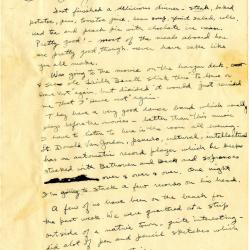 Just finished a delicious dinner - steak, baked
potatoes, peas, tomatoe juice, bean soup, fruit salad, rolls,
iced tea and peach pie with chocolate ice cream.
Pretty good! - most of the meals aboard here
are pretty good though never have cake like
you all make.
Was going to the movie on the hangar deck,
see
again, but decided it would just remind
me that I
They have a very good dance band which usually
plays before the movies - better than this music
I have to listen to here in the room all evening.
Lt. Donald Van Gordon,
has an automatic record player which he keeps
stacked with Beethoven and Bach and sopranos
over & over & over. One night
I'm going to stack a few records on his head.
A few of us have been on the beach for
the past week. We are quartered at a strip
outside of a native town. Quite interesting -
did a lot of pen and pencil sketches which